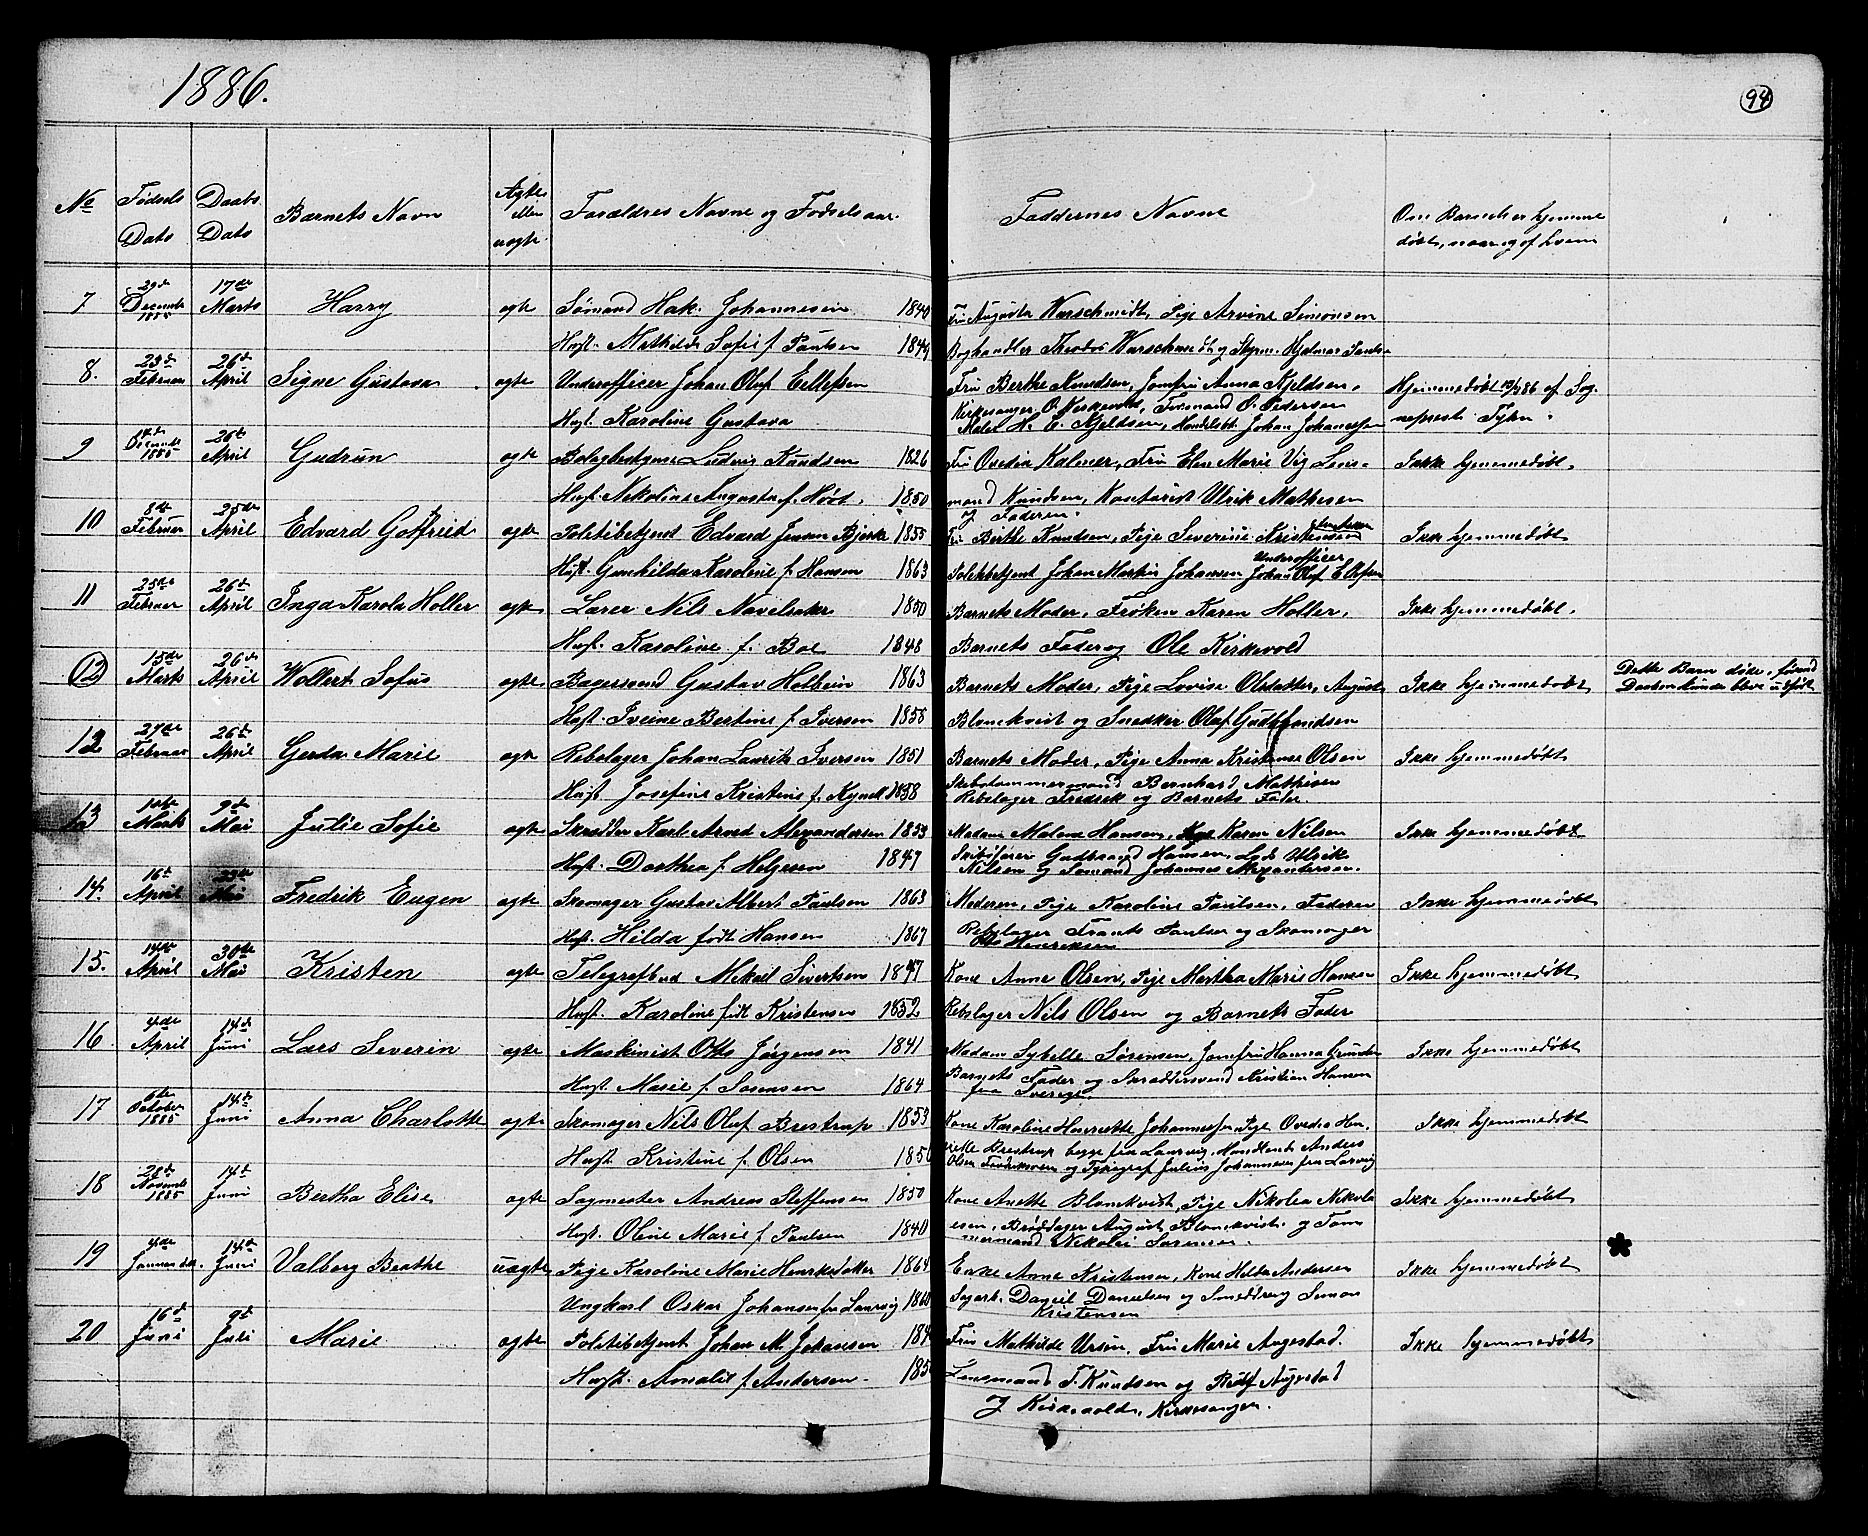 1886.
94
No
Fødsels Dato
Daabs Dato
Barnets Navn
Ægte eller uægte.
Forældres Navne og Fødselsaar.
Faddernes Navne
Om Barnet er hjemme
døbt, naar og af hvem
7 29de December 1885 17de Marts Harry ægte Sømand Hak. Johannesen 1840 Fru Augusta Warschmidt, Pige Arvine Simonsen
Hust. Mathilde Sofie f. Paulsen 1849 Boghandler Theodor Warschmidt og Styrm. Hjalmar
8. 23de Februar 26de April Signe Gustava ægte Underofficer Johan Oluf Ellefsen Fru Berthe Knudsen, Jomfru Anna Kjeldsen, Hjemmedøbt af Sog-
Hust. Karoline Gustava Kirkesanger O. Formand O. Pedersen
Maler H. E. Kjeldsen, Handelsbt. Johan Johannessen nepræst
9 14de Decembr 1885 26de April Gudrun ægte Ludvig Knudsen 1826 Fru Ovedia Kalmer, Fru Elen Marie Vig Lens- Ikke hjemmedøbt.
Hust. Nikoline Augusta f. Høst. 1850 mand Knudsen, Kontorist Ulrik Mathesen
og Faderen.
10 8de Februar 25de April Edvard Gotfried ægte Politibetjent Edvard Jensen Bjerke 1855 Fru Berthe Knudsen, Pige Severine Kristensen Ikke hjemmedøbt
Hust. Gunhilda Karoline f. Hansen 1863 Politibetjent Johan Martin Johansen Underofficer Johan Oluf Ellefsen
11 25de Februar 26de April Inga Karola Holler ægte Lærer Nils Navelsaker 1850 Barnets Moder, Frøken Karen Holler, Ikke hjemmedøbt.
Hust. Karoline f. Boe 1848 Barnets Fader og Ole Kirkevold
12 15de Marts 26de April Wollert Sofus ægte Bagersvend Gustav Holbein 1863 Barnets Moder, Pige Lovise Olstedter, August Ikke hjemmedøbt Dette Barn døde, førend
Hust. Iveine Bertine f. Iversen 1858 Blomkvist og Snedker Olaf Gudbrandsen Daaben kunde blive udført
12 27de Februar 26de April Gerda Marie ægte Rebslager Johan Lauritz Iversen 1851 Barnets Moder, Pige Anna Kristense Olsen Ikke hjemmedøbt
Hust. Josefine Kristine f. 1858 Skibstømmermand Bernhard Mathisen
Rebslager Fredrik og Barnets Fader.
13 10de Marts 9de Mai Julie Sofie ægte Skrædder Karl Arved Alexandersen 1853 Madam Malene Hansen, Pige Karen Nilsen Ikke hjemmedøbt
Hust. Dorthea f. Helgesen 1847 Skibsfører Gudbrand Hansen, Lods Ulrik
Nilsen og Sømand Johannes Alexandersen.
14. 16de April Mai Fredrik Eugen ægte Skomager Gustav Albert Paulsen 1863 Moderen, Pige Karoline Paulsen, Faderen Ikke hjemmedøbt
Hust. Hilda født Hansen 1867 Rebslager Frants Paulsen og Skomager
Otto Henriksen
15. 14de April 30te Mai Kristen ægte Telegrafbud Mikael Sivertsen 1847 Kone Anne Olsen, Pige Martha Marie Hansen Ikke hjemmedøbt
Hust. Karoline født Kristensen 1852 Rebslager Nils Olsen og Barnets Fader
16. 4de April 14de Juni Lars Severin ægte Maskinist Otto Jørgensen 1841 Madam Sybille Sørensen, Jomfru Hanna Ikke hjemmedøbt
Hust. Marie f. Sørensen 1864 Barnets Fader og Skræddersvend Kristian Hansen
fra Sverige
17 6te October 1885 14de Juni Anna Charlotte ægte Skomager Nils Oluf Brestrup 1853 Kone Karoline Henriette Johannessen, Pige Ovedia Hen- Ikke hjemmedøbt
Hust. Kristine f. Olsen 185 riette Brestrup begge fra Laurvig, Handlende Anders
Olsen Fredriksvern og Typograf Julius Johannesen fra Larvig
18 28de Novembr 1885 14de Juni Bertha Elise ægte Sagmester Andreas Steffensen 1850 Kone Anette Blomkvist, Pige Nikolea Nikola- Ikke hjemmedøbt
Hust. Oline Marie f. Paulsen 1840 esen, Brødbager August Blomkvist og Tøm-
mermand Nikolai Sørensen.
19 4de Januar 14de Juni Valborg Beathe uægte Pige Karoline Marie 1864 Enke Anne Kristensen, Kone Hilda Andersen Ikke hjemmedøbt
Ungkarl Oskar Johansen fra Laurvig 1860 Sagarb. Daniel Danielsen og Smeddreng Simon
Kristensen
20 16de Juni 9de Juli Marie ægte Politibetjent Johan M. Johansen 184 Fru Mathilde Ursin, Fru Marie Augestad. Ikke hjemmedøbt
Hust. Amalie f. Andersen 185 Lensmand F. Knudsen og Rolf Augestad
og Kirkevold, Kirkesanger.